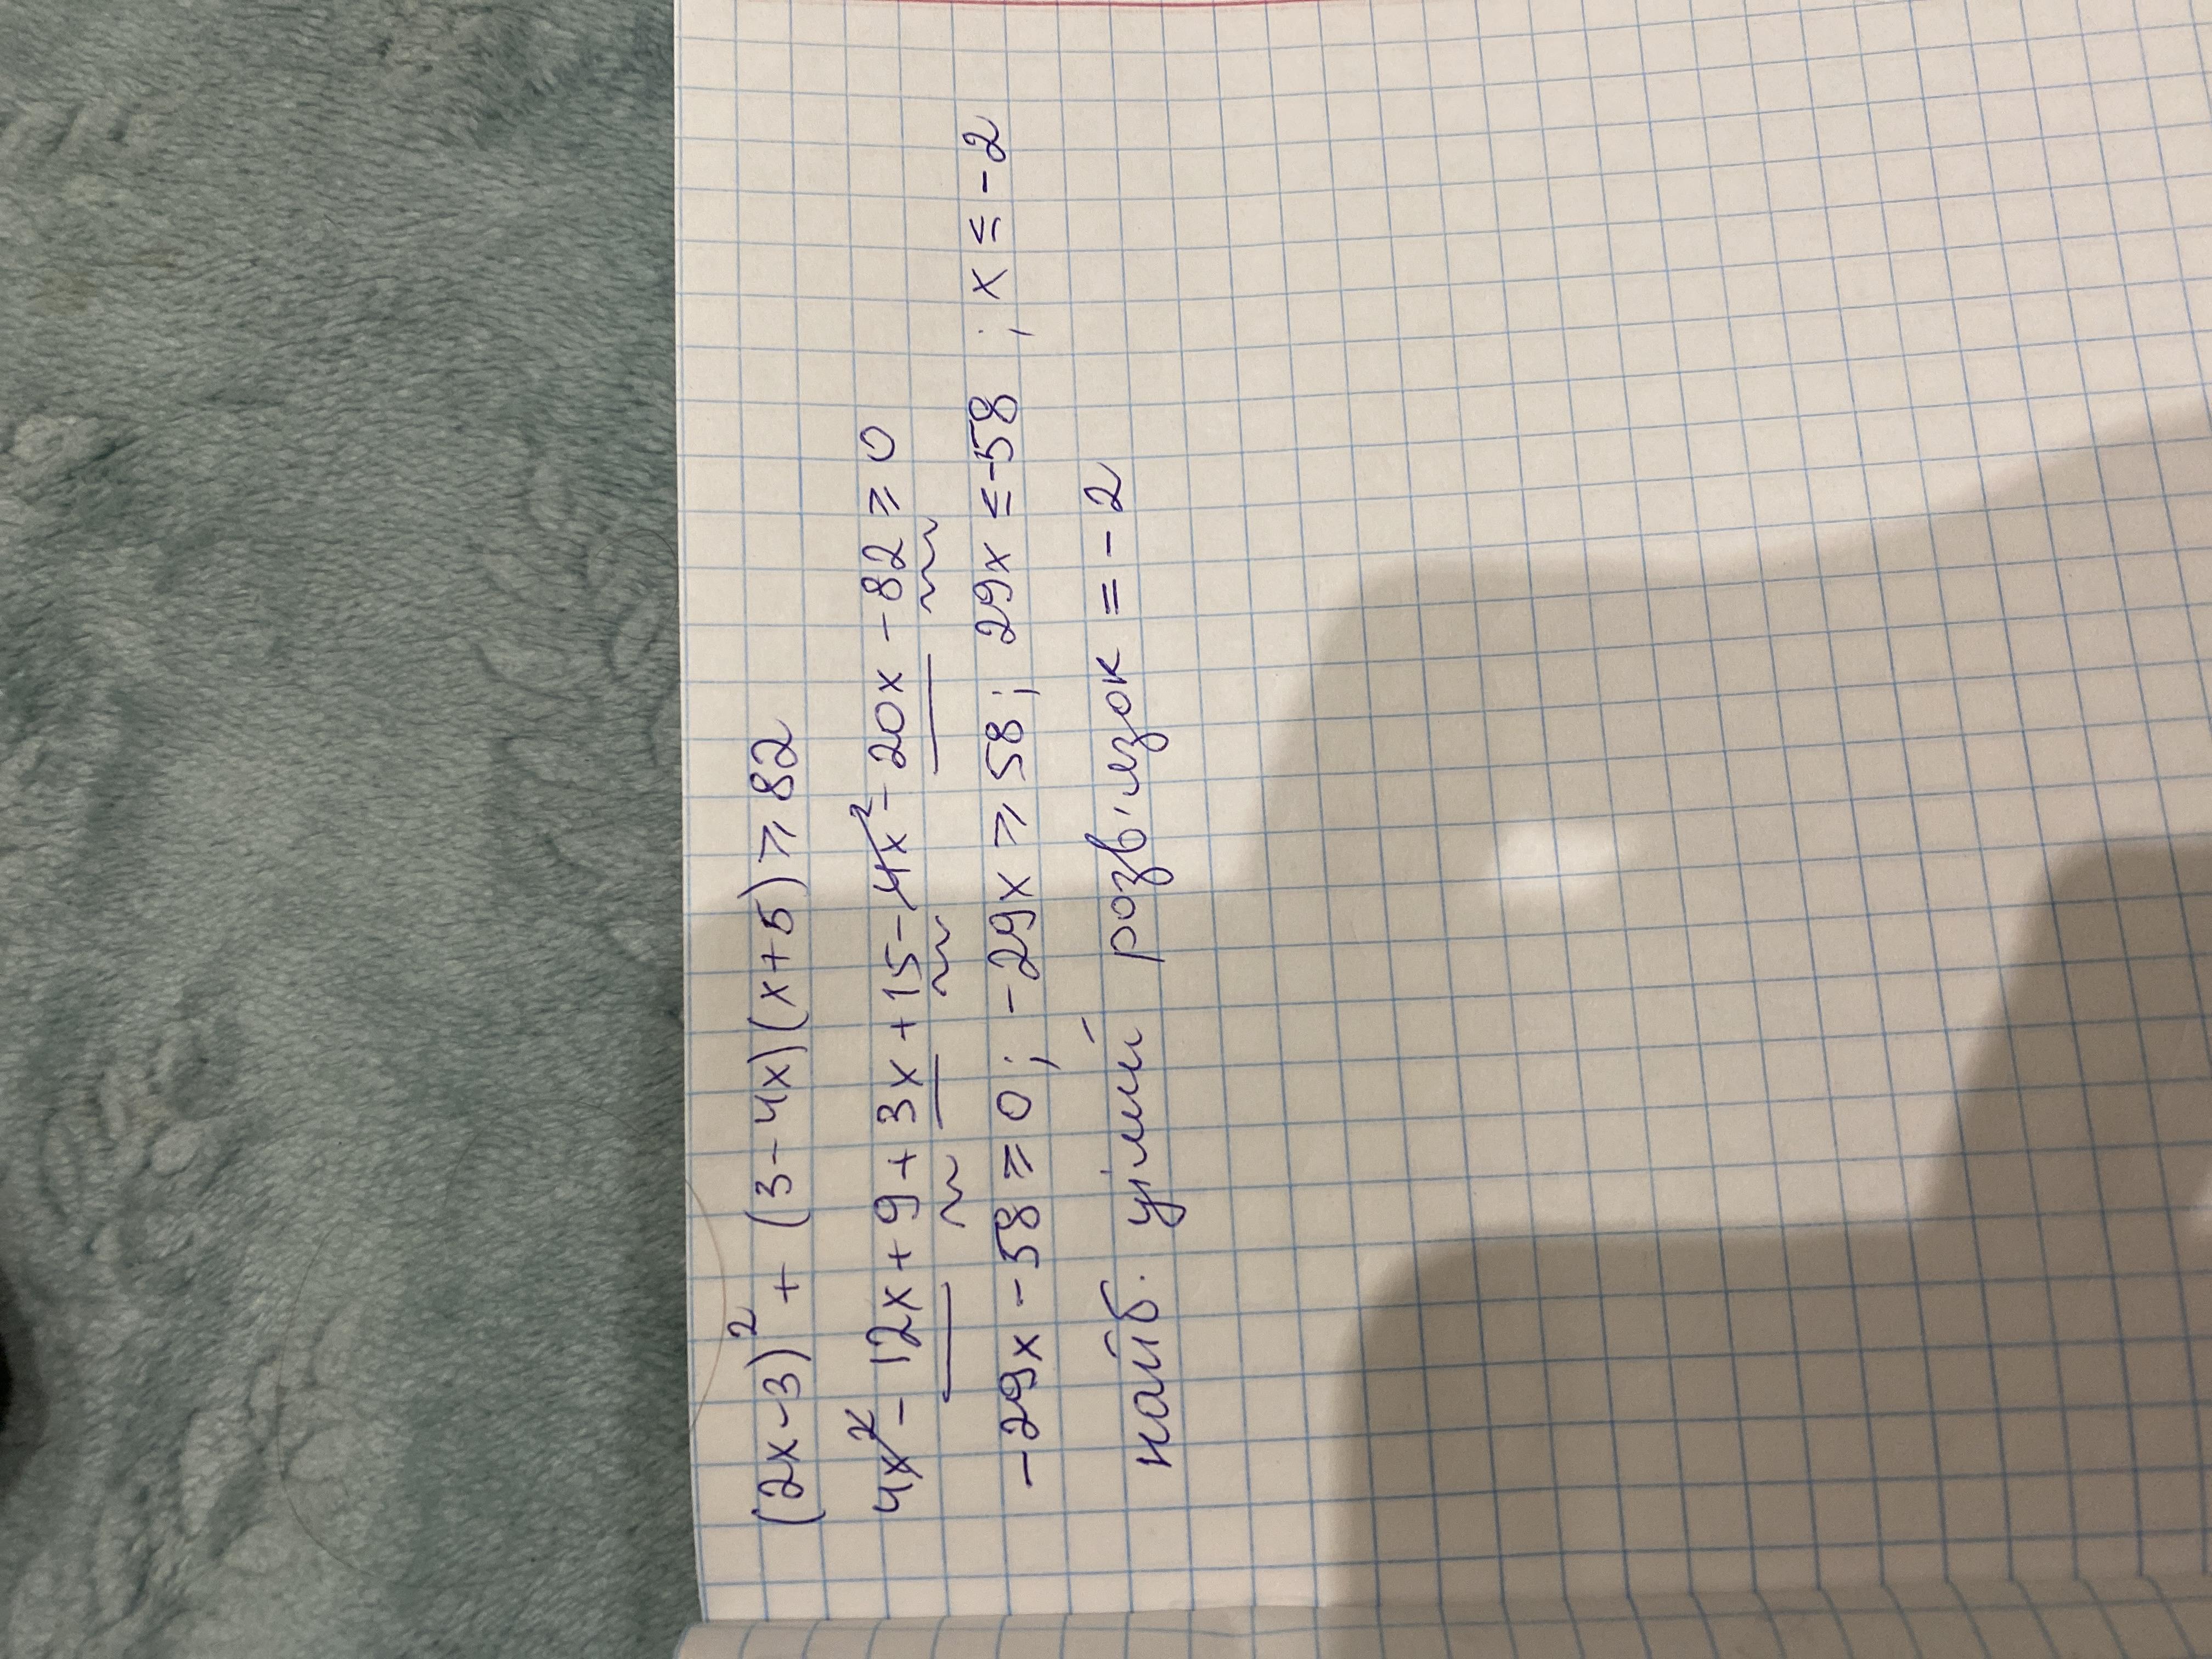 (2x-3)² + (3-4x)(x+5) ⩾ 82
4x² - 12x + 9 + 3x + 15 - 4x² - 20x - 82 ⩾ 0
-29x - 58 ⩾ 0; -29x ⩾ 58; 29x ≤ -58; x ≤ -2
найб. цілий розв'язок = -2